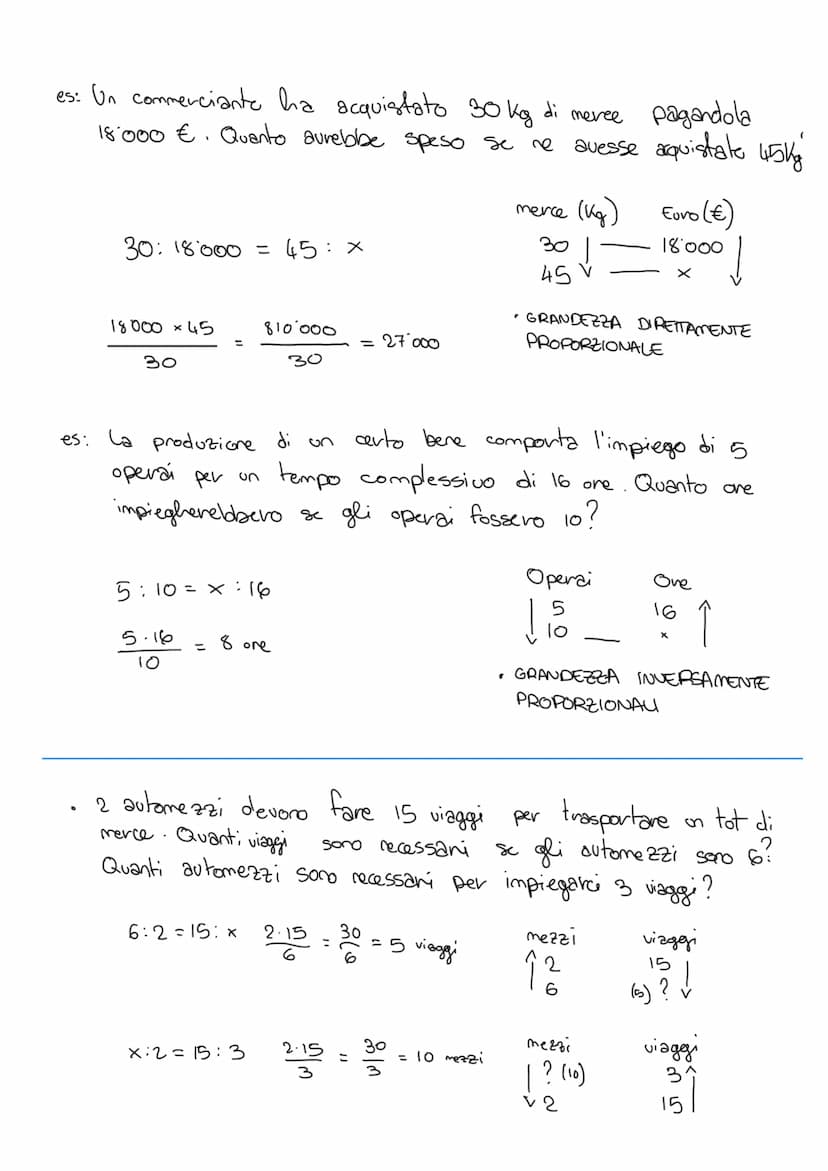 es: Un commerciante ha acquistato 30 Kg di merce pagandola
18'000 €. Quanto avrebbe speso se ne avesse acquistato 45Kg
merce (Kg) Euro (€)
30 : 18'000 = 45 : x
30 ↓ — 18'000 ↓
45 — x
18'000 × 45 / 30 = 810'000 / 30 = 27'000
• GRANDEZZA DIRETTAMENTE
PROPORZIONALE
es: La produzione di un certo bene comporta l'impiego di 5
operai per un tempo complessivo di 16 ore. Quanto ore
impiegherebbero se gli operai fossero 10?
Operai Ore
5 : 10 = x : 16
↓ 5 16 ↑
10 — x
5 · 16 / 10 = 8 ore
• GRANDEZZA INVERSAMENTE
PROPORZIONALI
• 2 automezzi devono fare 15 viaggi per trasportare un tot di
merce. Quanti viaggi sono necessari se gli automezzi sono 6?
Quanti automezzi sono necessari per impiegarci 3 viaggi?
6 : 2 = 15 : x 2·15 / 6 = 30 / 6 = 5 viaggi
mezzi viaggi
↑ 2 15 ↓
6 (5) ?
x : 2 = 15 : 3 2·15 / 3 = 30 / 3 = 10 mezzi
mezzi viaggi
↓ ? (10) 3 ↑
2 15